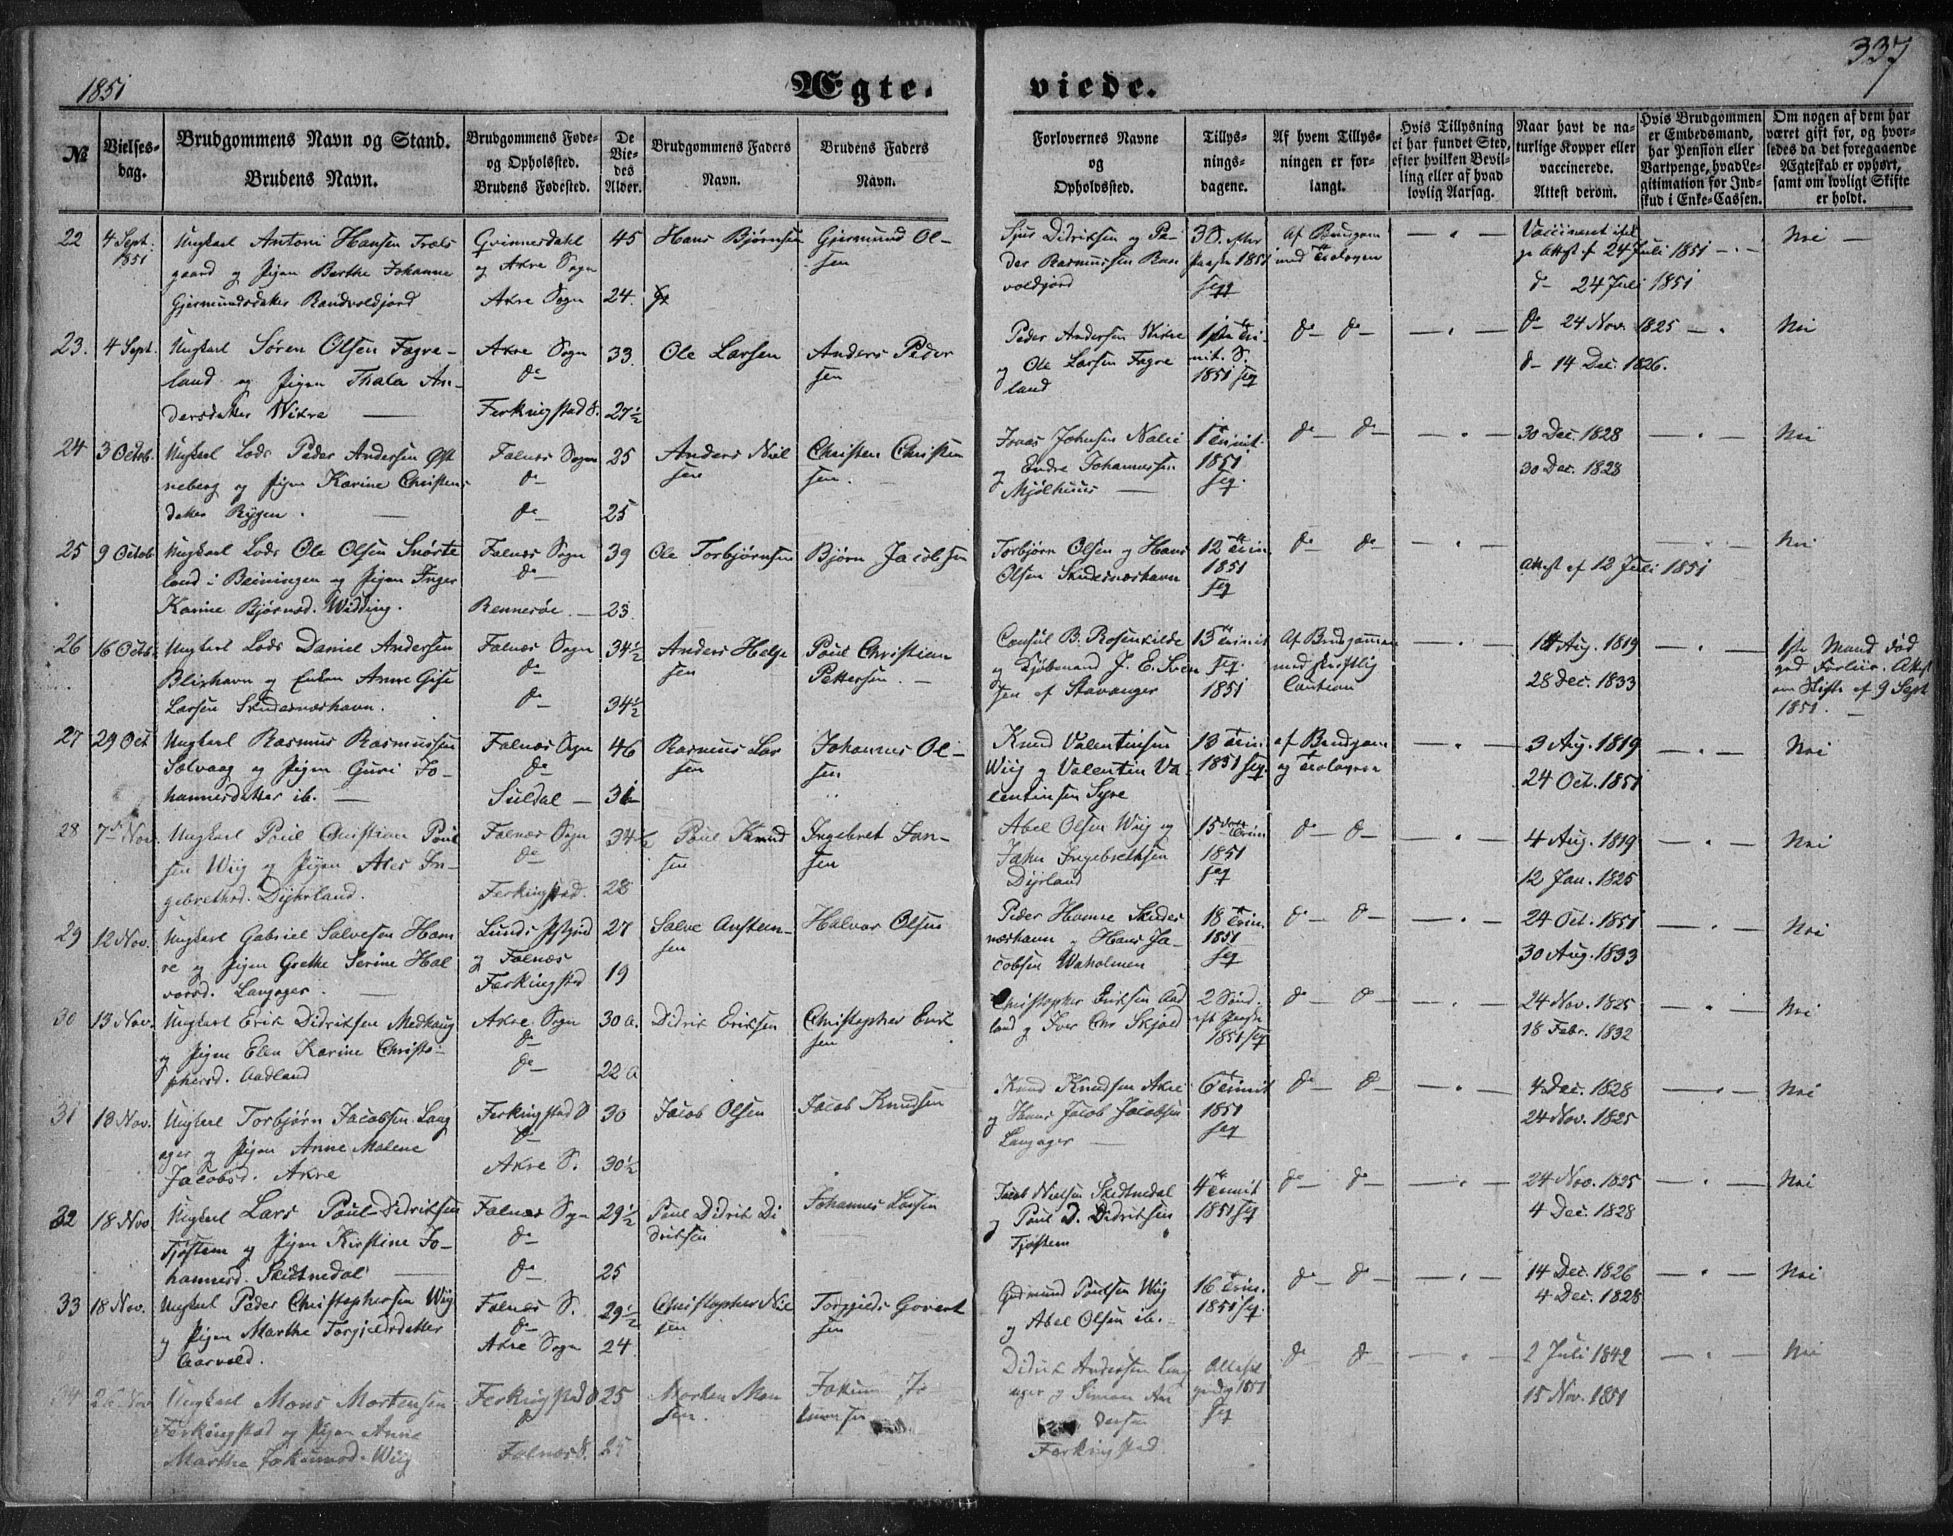 337
1851
Ægte-
viede.
№
Vielses-
dag.
Brudgommens Navn og Stand.
Brudens Navn.
Brudgommens Føde-
og Opholdssted.
Brudens Fødested.
De
Vie-
des
Alder.
Brudgommens Faders
Navn.
Brudens Faders
Navn.
Forlovernes Navne
og
Opholdssted.
Tillys-
nings-
dagene.
Af hvem Tillys-
ningen er for-
langt.
Hvis Tillysning
ei har fundet Sted,
efter hvilken Bevil-
ling eller af hvad
lovlig Aarsag.
Naar havt de na-
turlige Kopper eller
vaccinerede.
Attest derom.
Hvis Brudgommen
er Embedsmand,
har Pension eller
Vartpenge, hvad Le-
gitimation for Ind-
skud i Enke-Cassen.
Om nogen af dem har
været gift før, og hvor-
ledes da det foregaaende
Ægteskab er ophørt,
samt om lovligt Skifte
er holdt.
22 4 Sept. 1851
Ungkarl Antoni Hansen
gaard og Pigen Berthe Johanne
Gjermundsdatter
og Akre Sogn
Akre Sogn
45
24.
Hans Bjørnsen
Gjermund Ol-
sen
Sjur Didriksen og Pe-
der Rasmussen
1851
24 Juli 1851
d- 24 Juli 1851
Nei
23. 4 Sept.
Ungkarl Søren Olsen Fagre-
land og Pigen Thala An-
dersdatter Wikre
Akre Sogn
do
Ferkingstad S.
33
27½
Ole Larsen
Anders Peder
sen
Peder Andersen Wikre
og Ole Larsen Fagre
land
1851 seq
do do
do 24 Nov. 1825
d- 14 Dec. 1826.
Nei
24 3 Octob.
Ungkarl Lods Peder Andersen Øst
neberg og Pigen Karine Christens
datter Rygen.
Falnes Sogn
do
do
25
25
Anders Niel
sen
Christen Christen
sen.
Johnsen
og Endre Johannessen
Mjølhuus
1851
seq.
do do
30 Dec. 1828
30 Dec. 1828
Nei
25 9 Octob
Ungkarl Lods Ole Olsen Snørte
land i Beiningen og Pigen Inger
Karine Bjørnsd. Widding.
Falnes Sogn
do
Rennesøe
39
23
Ole Torbjørnsen
Bjørn Jacobsen
Torbjørn Olsen og Hans
Olsen Skudesnæshavn
12 Trin.
1851
seq
do do
Attest af 12 Juli 1851
Nei
26 16 Octob.
Ungkarl Lods Daniel Andersen
Blixhavn og Enken Anne Gise
Larsen Skudesnæshavn.
Falnes Sogn
do
do
34½
34½
Anders Helge
sen
Poul Christian
Pettersen.
Consul B. Rosenkilde
og Kjøbmand J. E. Iven
sen af Stavanger
13 Trinit
seq.
1851
Af Brudgommen
med skriftlig
Caution
Aug. 1819
28 Dec. 1833
1ste Mand død
ved Forliis. Attest
om Skifte af 9 Sept
1851.
27 29 Oct
Ungkarl Rasmus Rasmussen
Solvaag og Pigen Guri Jo-
hannesdatter ib.
Falnes Sogn
do
Suldal
46
31
Rasmus Lar
sen
Johannes Ol-
sen
Knud Valentinsen
Wiig og Valentin Va-
lentinsen Syre
13 Trin.
1851 seq.
af Brudgom
og
3 Aug. 1819
24 Oct. 1851
Nei
28 7 Nov.
Ungkarl Poul Christian Poul
sen Wiig og Pigen In-
gebrethsd. Dyrland.
Falnes Sogn
do
Ferkingstad.
34½
28
Poul Knud
sen
Ingebret Jan-
sen
Abel Olsen Wiig og
Ingebrethsen
Dyrland
15 Trin
1851
seq
do do
4 Aug. 1819
12 Jan. 1825
Nei
29 12 Nov.
Ungkarl Gabriel Salvesen Ham
re og Pigen Grethe Serine Hal
vorsd. Langager.
Lunds
og Falnes
Ferkingstad
27
19
Salve Austen-
sen
Halvor Olsen
Peder Hamre Skudes
næshavn og Hans Ja-
cobsen Waholmen
18 Trin
1851
seq
do do
24 Oct. 1851
30 Aug. 1833
Nei
30 13 Nov.
Ungkarl Erik Didriksen Medhaug
og Pigen Elen Karine Christo-
phersd. Aadland
Akre Sogn
do
do
30 A.
22 A
Didrik Eriksen
Christopher Erik
sen
Christopher Eriksen Aad
land og Iver Chr Skjold
2 Sønd.
eft Paaske
1851 seq
do do
24 Nov. 1825
18 Febr. 1832
Nei
31 13 Nov.
Ungkarl Torbjørn Jacobsen Lang
ager og Pigen Anne Malene
Jacobsd. Akre
Ferkingstad S
do
Akre S.
30
30½
Jacob Olsen
Jacob Knudsen
Knud Knudsen Akre
og Hans Jacob Jacobsen
Langager
6 Trinit
1851
seq
do do
4 Dec. 1828
24 Nov. 1825
Nei
32 18 Nov
Ungkarl Lars Poul Didriksen
Tjøstem og Pigen Kirstine Jo-
hannesd. Skidtnedal
Falnes Sogn
do
do
29½
25
Poul Didrik Di
driksen
Johannes Larsen
Jacob Nielsen Skidtnedal
og Poul D. Didriksen
Tjøstem
4 Trinit
1851 seq
do do
24 Nov. 1825
4 Dec. 1828
Nei
33 18 Nov.
Ungkarl Peder Christophersen Wiig
og Pigen Marthe Torgjelsdatter
Aarvold.
Falnes S.
do
Akre Sogn
29½
24
Christopher Niel
sen
Torgjeds Govert
sen
Gudmund Poulsen Wiig
og Abel Olsen ib.
16 Trin.
1851 seq.
do do
14 Dec. 1826
4 Dec. 1828
Nei
34 Nov
Ungkarl Mons Mortensen
Ferkingstad og Pigen Anne
Marthe Jokumsd. Wiig
Ferkingstad S
do
Falnes S.
25
25
Morten Mon
sen.
Jokum Jo
kumsen
Didrik Andersen Lang
ager og Simon An
dersen
Ferkingstad.
1851
seq
do do
2 Juli 1842
15 Nov. 1851
Nei